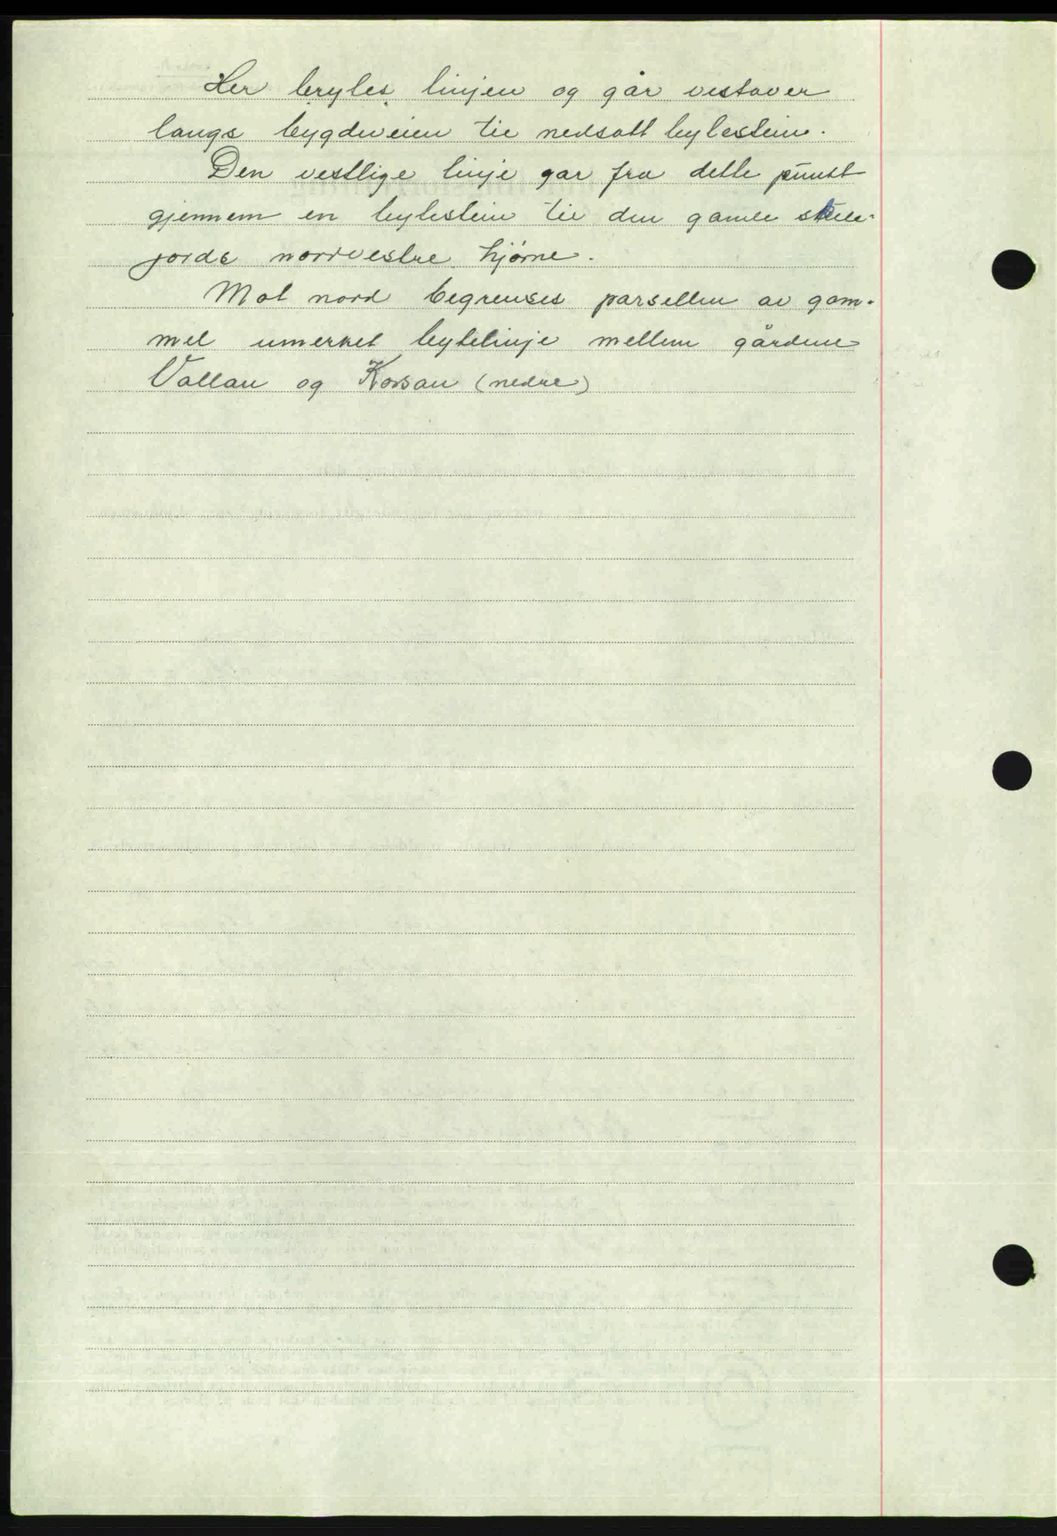 Her brytes linjen og går vestover
langs bygdeveien til nedsatt bytestein.
Den vestlige linje gar fra dette punkt
gjennem en bytestein til den gamle skole-
jords nordvestre hjørne.
Mot nord begrenses parsellen av gam-
mel umerket bytelinje mellem gårdene
Vollan og Korsan (nedre)